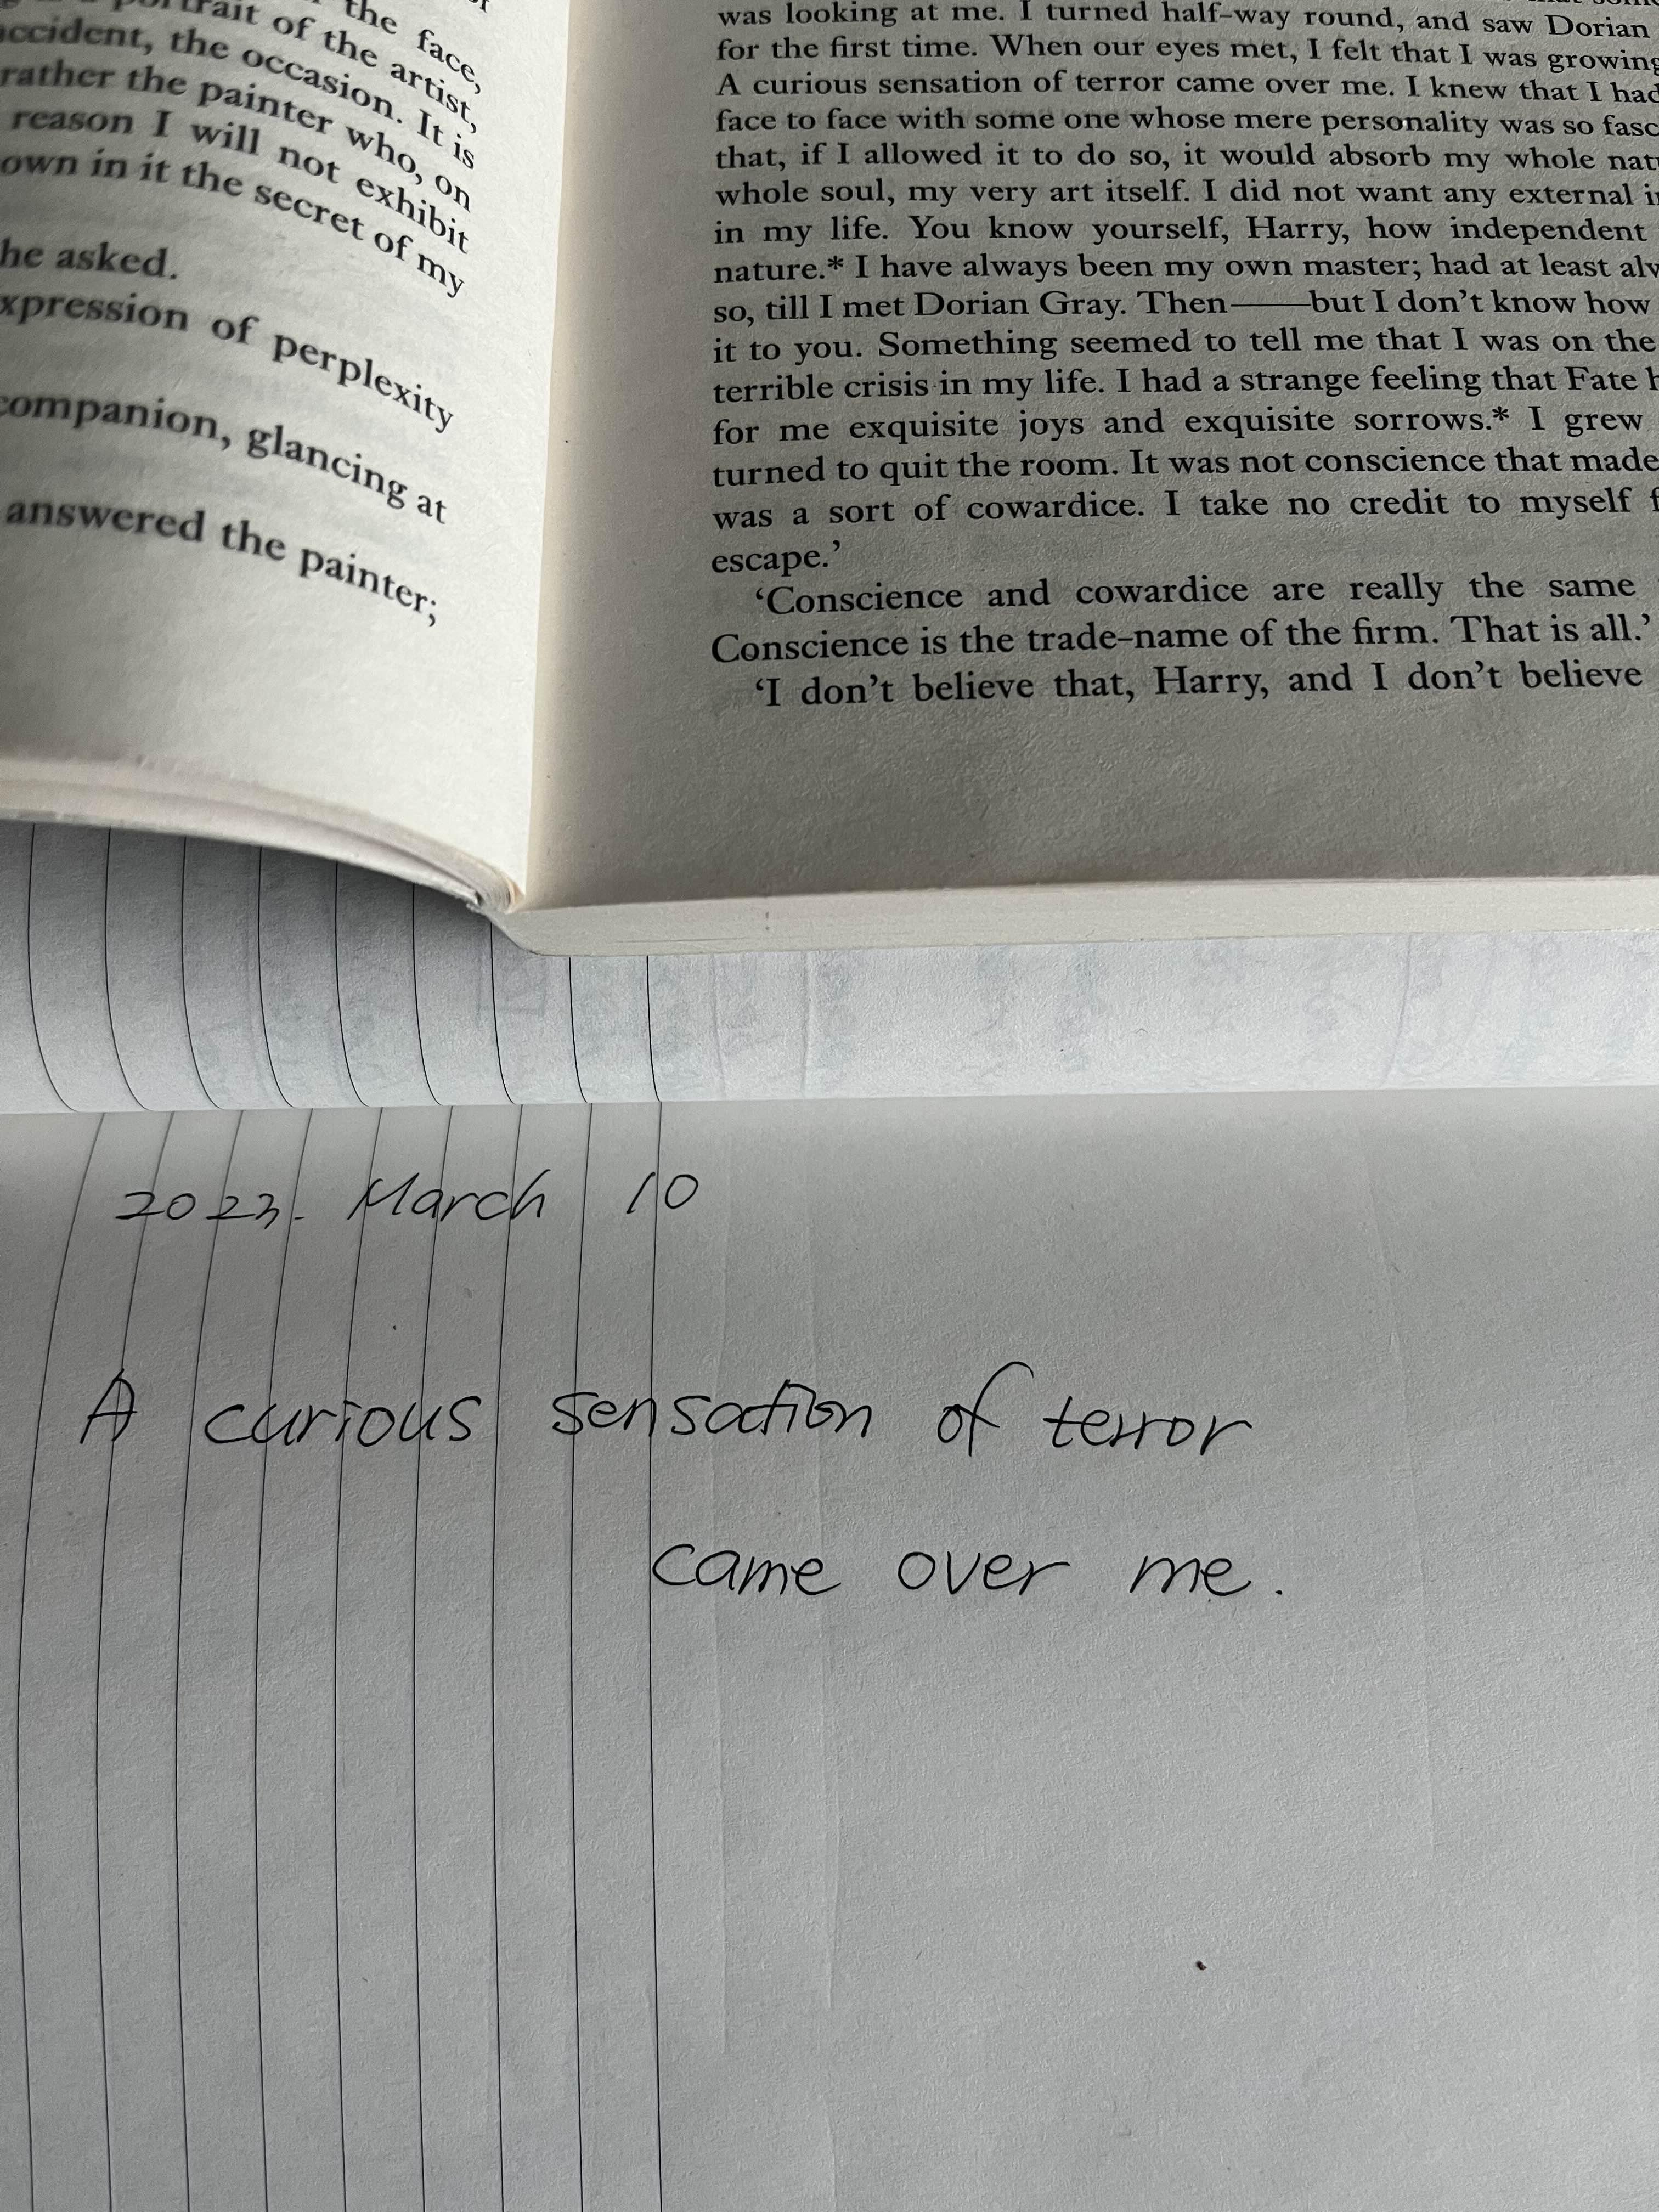 the face,
portrait of the artist,
accident, the occasion. It is
rather the painter who, on
reason I will not exhibit
own in it the secret of my
he asked.
xpression of perplexity
companion, glancing at
answered the painter;
was looking at me. I turned half-way round, and saw Dorian
for the first time. When our eyes met, I felt that I was growing
A curious sensation of terror came over me. I knew that I had
face to face with some one whose mere personality was so fasc
that, if I allowed it to do so, it would absorb my whole nat
whole soul, my very art itself. I did not want any external
in my life. You know yourself, Harry, how independent
nature.* I have always been my own master; had at least alw
so, till I met Dorian Gray. Then——but I don’t know how
it to you. Something seemed to tell me that I was on the
terrible crisis in my life. I had a strange feeling that Fate
for me exquisite joys and exquisite sorrows.* I grew
turned to quit the room. It was not conscience that made
was a sort of cowardice. I take no credit to myself f
escape.’
‘Conscience and cowardice are really the same
Conscience is the trade-name of the firm. That is all.’
‘I don’t believe that, Harry, and I don’t believe
2023. March 10
A curious sensation of terror
came over me.